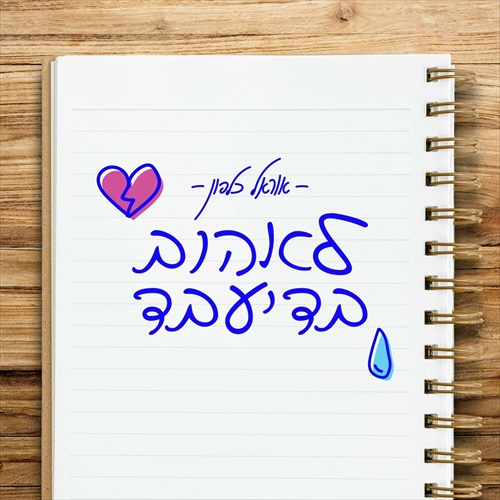 - אוראל צלפון -
לאהוב
בדיעבד